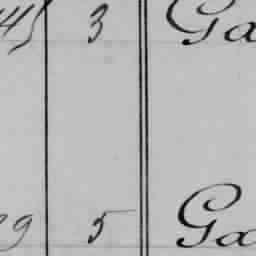 45 3 Ga
29 5 Ga